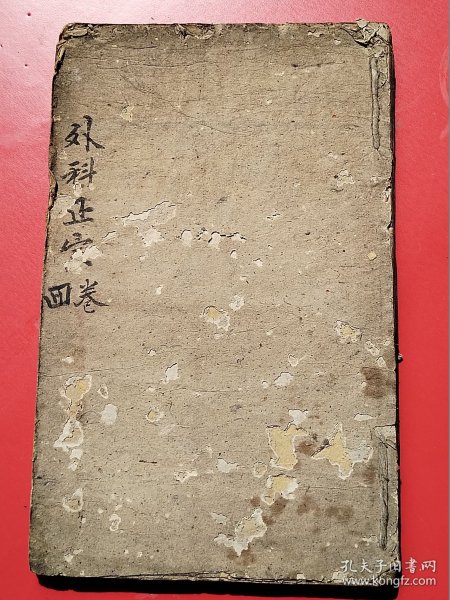 外科正宗
卷四
孔夫子旧书网
www.kongfz.com